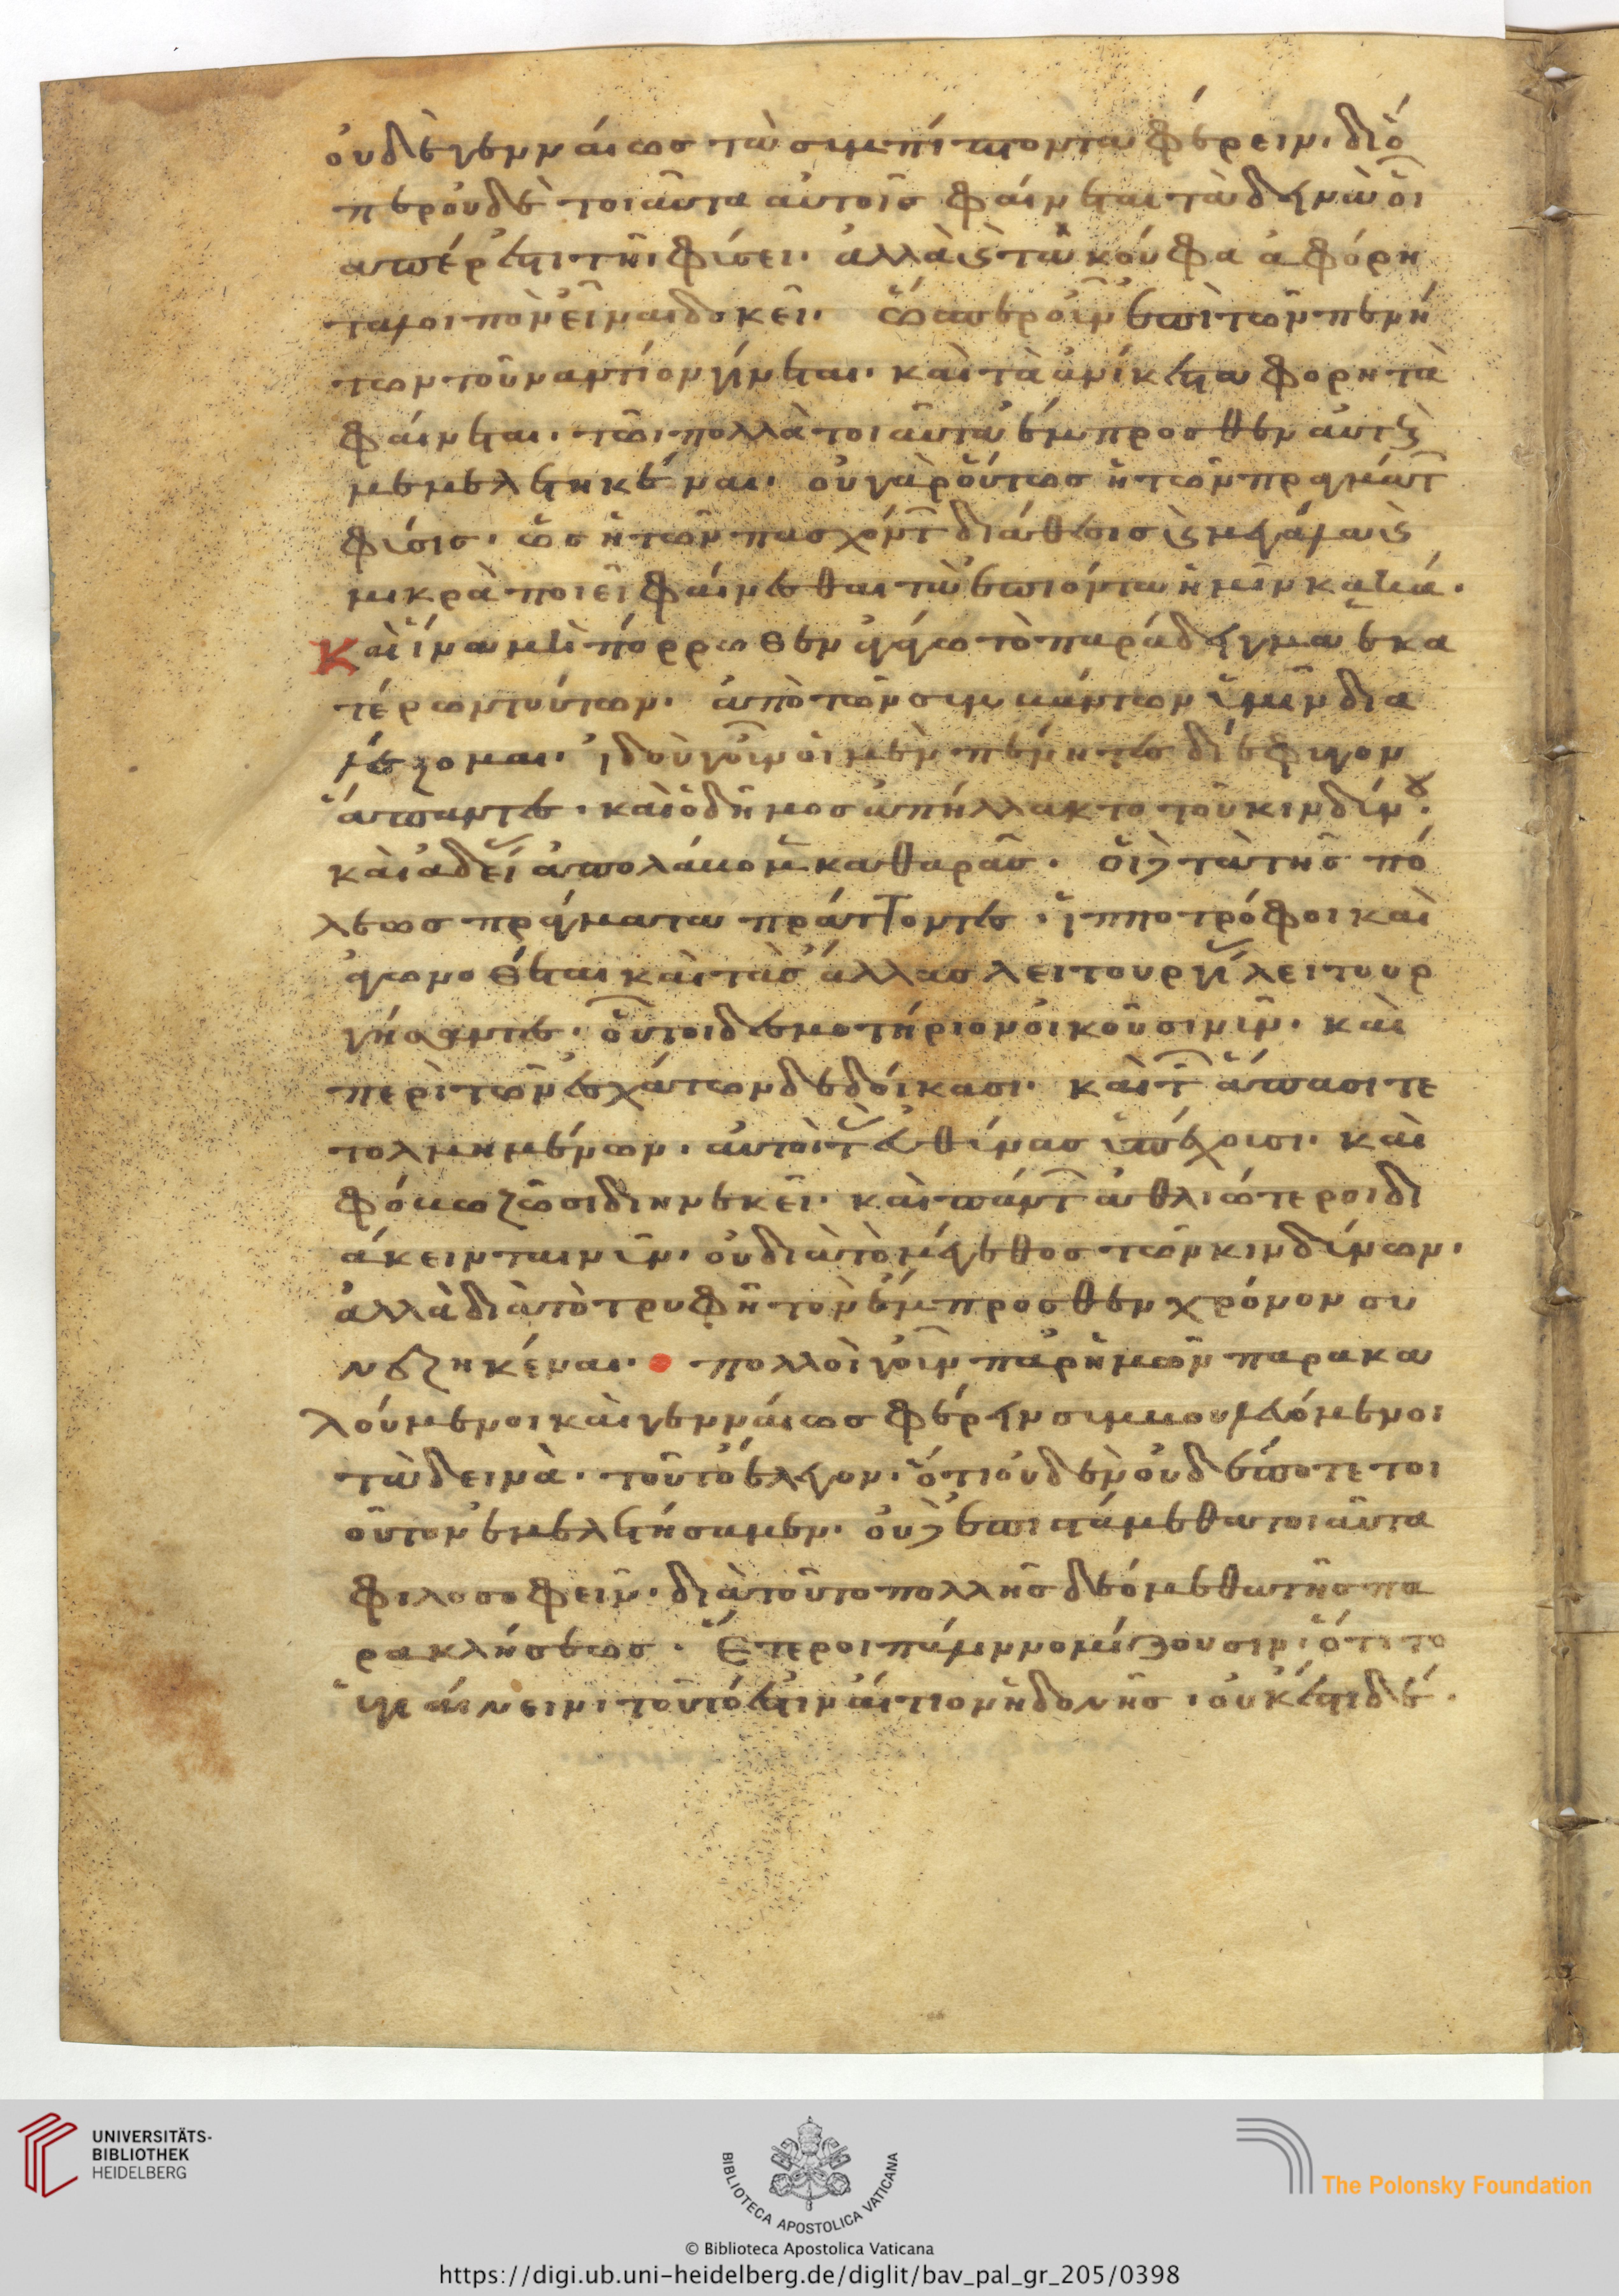 οὐδὲ γενναίως τὰ συμπίπτοντα φέρειν. διό
περ οὐδὲ τοιαῦτα αὐτοῖς φαίνεται τὰ δεινὰ οἷ
α πέρ ἐστι τῆι φύσει. ἀλλὰ ϗ τὰ κοῦφα ἀφόρη
τα λοιπὸν εἶναι δοκεῖ. ὥσπερ οὖν ἐπὶ τῶν πενή
των τοὐναντίον γίνεται. καὶ τὰ ἀνίκητα φορητὰ
φαίνεται. τῶι πολλὰ τοιαῦτα ἔμπροσθεν αὐτοὺς
μεμελετηκέναι. οὐ γὰρ οὕτως ἡ τῶν πραγμάτ
φύσις. ὡς ἡ τῶν πασχόντ διάθεσις ϗ μεγάλα ϗ
μικρὰ ποιεῖ φαίνεσθαι τὰ ἐπιόντα ἡμῖν κακά.
Καὶ ἵνα μὴ πόρρωθεν ἄγω τὸ παράδειγμα ἑκα
τέρων τούτων. ἀπὸ τῶν συμβάντων ὑμῖν δια
λέξομαι. ἰδοὺ γοῦν οἱ μὲν πένητες διέφυγον
ἅπαντες. καὶ ὁ δῆμος ἀπήλλακτο τοῦ κινδύνου.
καὶ ἀδείας ἀπολάβομεν καθαρᾶς. οἱ δὲ τὰ τῆς πό
λεως πράγματα πράττοντες. ἱπποτρόφοι καὶ
ἀγωνοθέται καὶ τὰς ἄλλας λειτουργίας λειτουρ
γήσαντες. οὗτοι δεσμωτήριον οἰκοῦσι νῦν. καὶ
περὶ τῶν ἐσχάτων δεδοίκασι. καὶ τῶν ἅπασι τε
τολμημένων. αὐτοὶ τὰς εὐθύνας ὑπέχουσι. καὶ
φόβω ζῶσι διηνεκεῖ. καὶ πάντ ἀθλιώτεροι δι
άκεινται νῦν. οὐ διὰ τὸ μέγεθος τῶν κινδύνων.
ἀλλὰ διὰ τὸ τρυφῆ τὸν ἔμπροσθεν χρόνον συ
νεζηκέναι. πολλοὶ γοῦν παρ' ἡμῶν παρακα
λούμενοι καὶ γενναίως φέρειν συμβουλευόμενοι
τὰ δεινὰ. τοῦτο ἔλεγον. ὅτι οὐδὲν οὐδέποτε τοι
οῦτον ἐμελετήσαμεν. οὐδὲ ἐπιστάμεθα τοιαῦτα
φιλοσοφεῖν. διὰ τοῦτο πολλῆς δεόμεθα τῆς πα
ρακλήσεως. Ἕτεροι πάλιν νομίζουσιν ὅτι τὸ
ὑγιαίνειν τοῦτό ἐστιν αἴτιον ἡδονῆς. οὐκ ἔστι δέ.
UNIVERSITÄTS-
BIBLIOTHEK
HEIDELBERG
BIBLIOTECA APOSTOLICA VATICANA
The Polonsky Foundation
© Biblioteca Apostolica Vaticana
https://digi.ub.uni-heidelberg.de/diglit/bav_pal_gr_205/0398